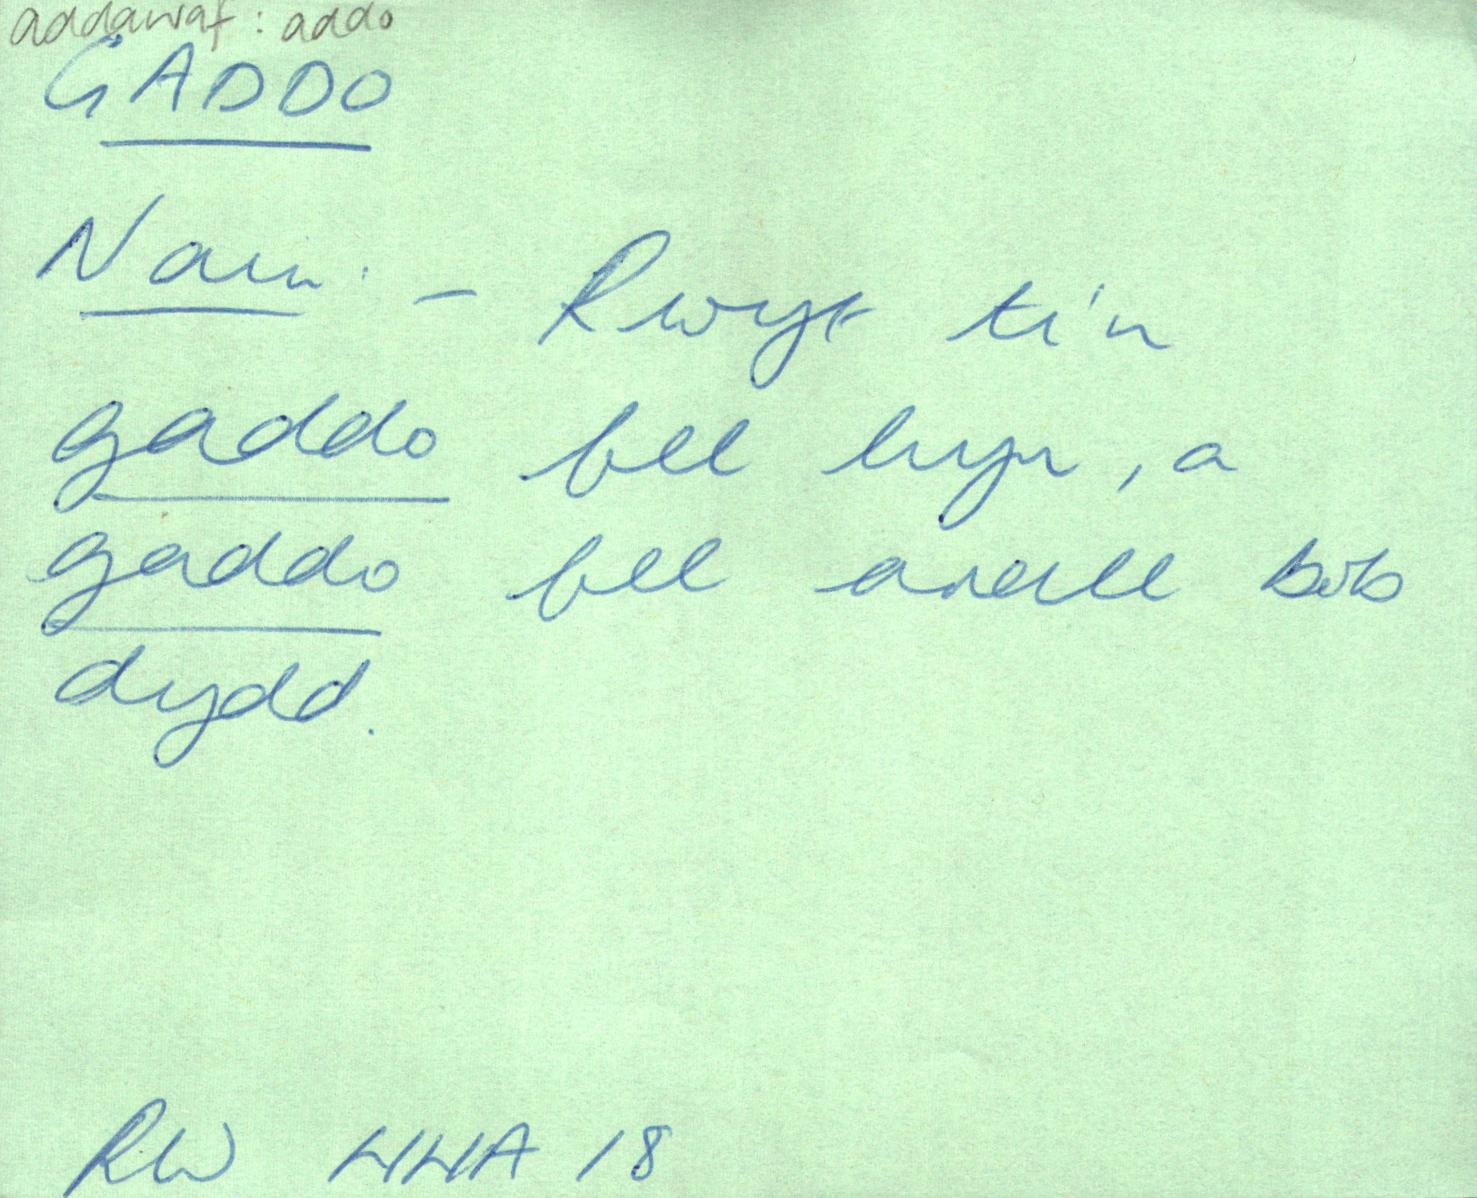 addawaf : addo
GADDO
Nain : - Rwyt ti'n
gaddo fel hyn, a
gaddo fel arall bob
dydd.
RW HHA 18